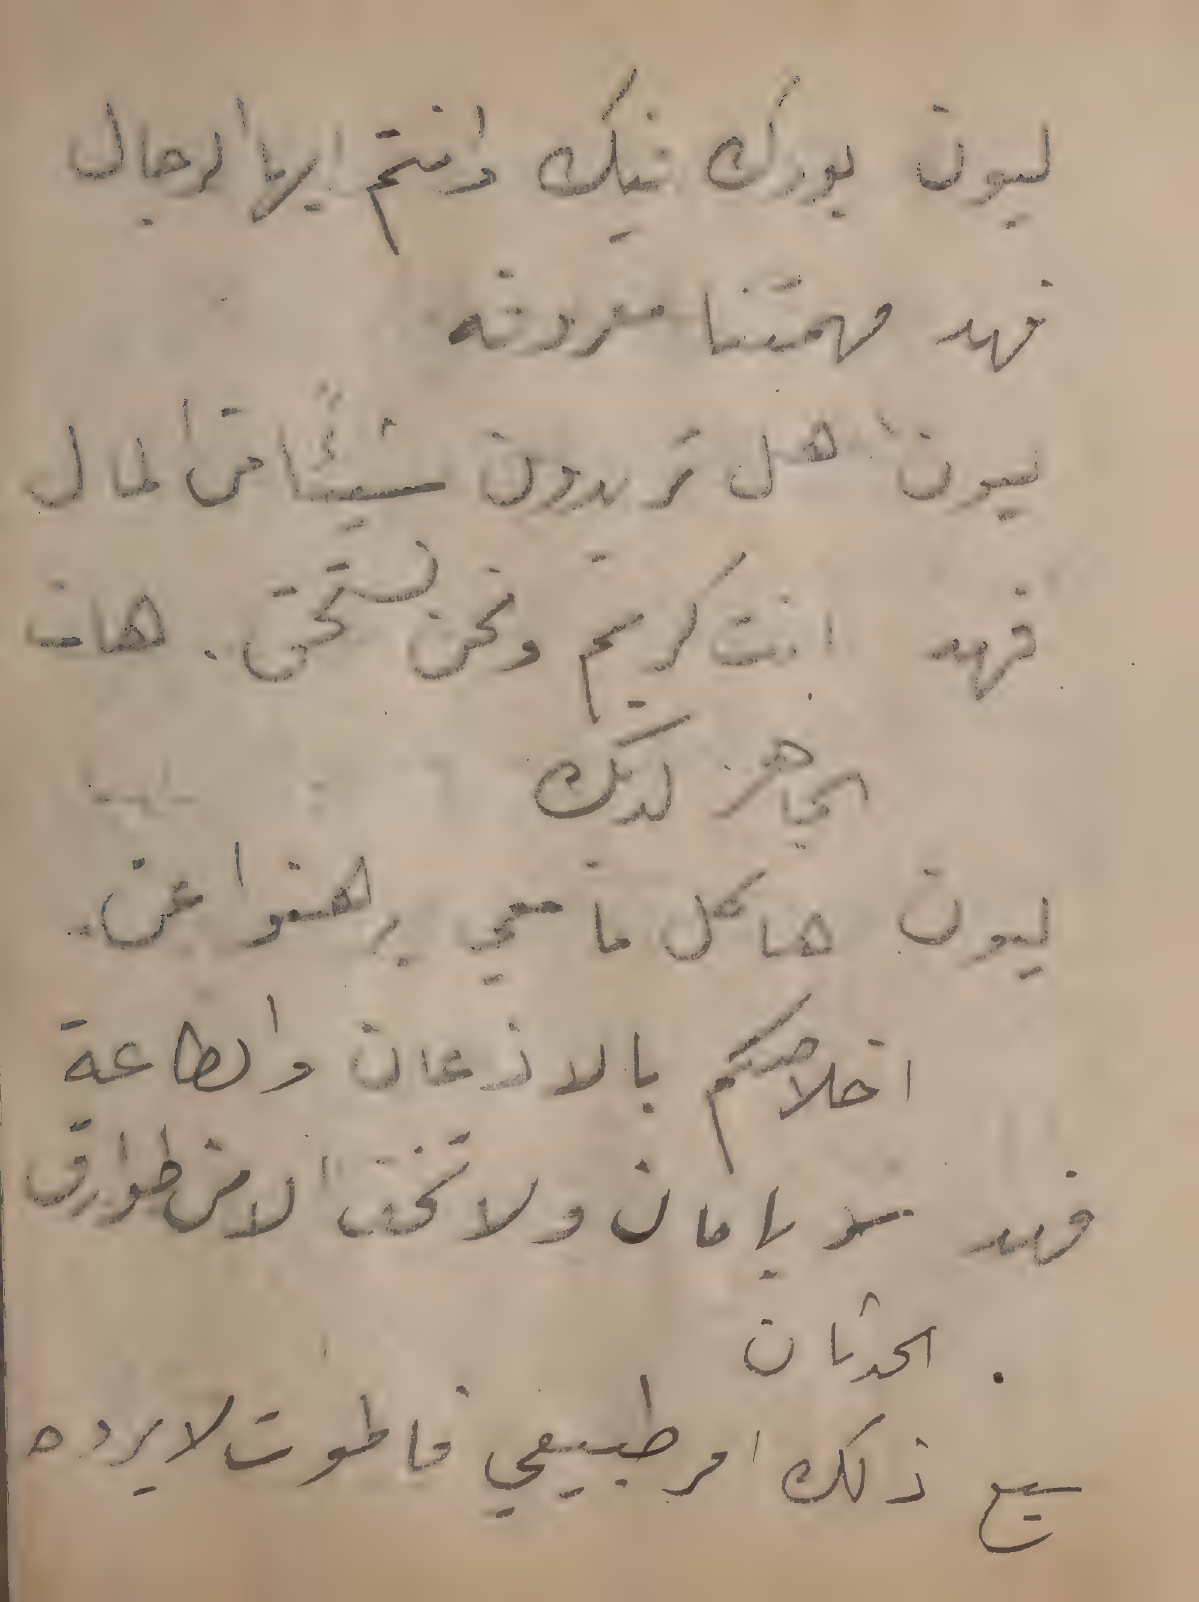 ليون بورك فيك وانتم ايها الرجال
فهد مهمتنا معروفه
ليون هل تريدون شيئاً من المال
فهد انت كريم ونحن نستحق. هات
الجاهز لديك
ليون هاكل ما معي برهنوا عن
اخلاصكم بالاذعان والطاعة
فهد سر بامان ولا تخف الا من طوارق
الحدثان
سبع ذلك امر طبيعي فالموت لا يرده